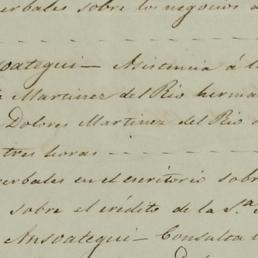 erbales sobre los negocios d
soategui — Asistencia á l
Martinez del Rio herma
Dolores Martinez del Rio
tres horas —
erbales en el escritorio sobr
sobre el crédito de la S.a
Ansoategui — Consulta